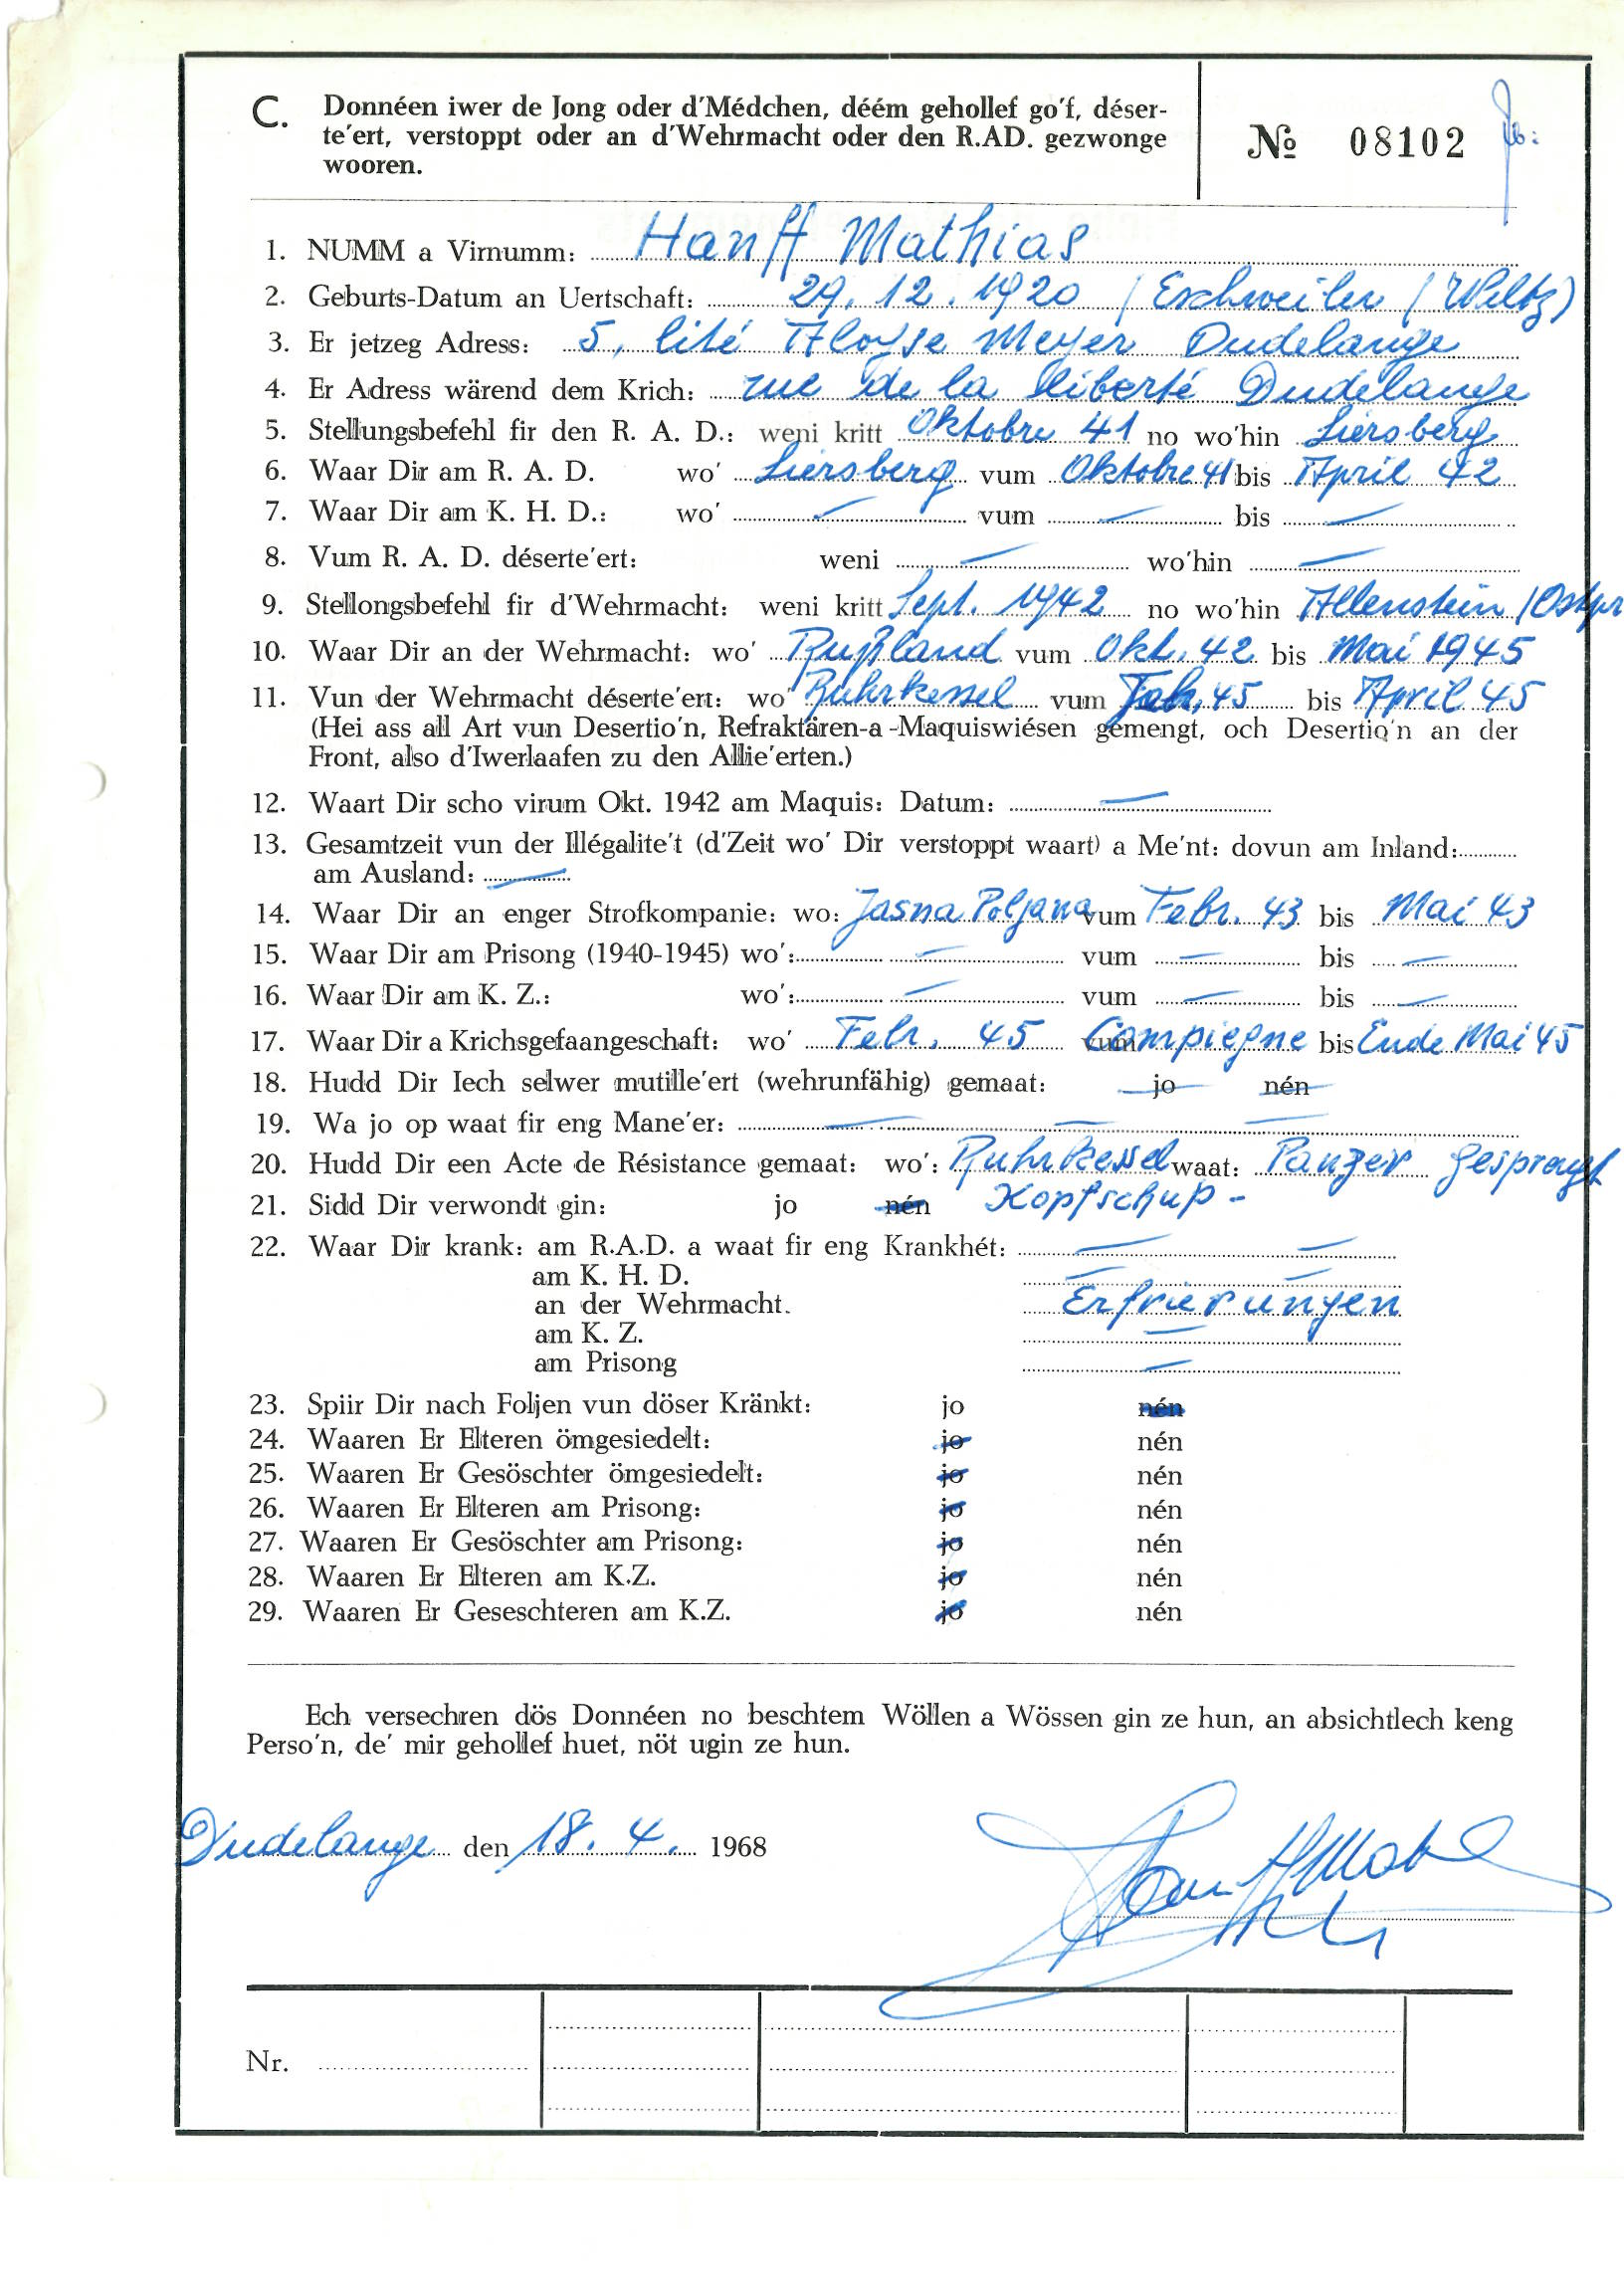 C. Donnéen iwer de Jong oder d'Médchen, déém gehollef go'f, déser-
te'ert, verstoppt oder an d'Wehrmacht oder den R.AD. gezwonge
wooren.
№ 08102
1. NUMM a Virnumm: Hanff Mathias
2. Geburts-Datum an Uertschaft: 29.12.1920 / Eschweiler / Wiltz)
3. Er jetzeg Adress: 5, Cité Aloyse Meyer Dudelange
4. Er Adress wärend dem Krich: rue de la Liberté Dudelange
5. Stellungsbefehl fir den R. A. D.: weni kritt Oktobre 41 no wo'hin Liersberg
6. Waar Dir am R. A. D. wo' Liersberg vum Oktobre 41 bis April 42
7. Waar Dir am K. H. D.: wo' — vum — bis —
8. Vum R. A. D. déserte'ert: weni — wo'hin —
9. Stellongsbefehl fir d'Wehrmacht: weni kritt Sept. 1942 no wo'hin Allenstein /Ostpr
10. Waar Dir an der Wehrmacht: wo' Rußland vum Okt. 42 bis Mai 1945
11. Vun der Wehrmacht déserte'ert: wo' Ruhrkessel vum Feb. 45 bis April 45
(Hei ass all Art vun Desertio'n, Refraktären-a -Maquiswiésen gemengt, och Desertio'n an der
Front, also d'Iwerlaafen zu den Allie'erten.)
12. Waart Dir scho virum Okt. 1942 am Maquis: Datum: —
13. Gesamtzeit vun der Illégalite't (d'Zeit wo' Dir verstoppt waart) a Me'nt: dovun am Inland:
am Ausland: —
14. Waar Dir an enger Strofkompanie: wo: Jasna Poljana vum Febr. 43 bis Mai 43
15. Waar Dir am Prisong (1940-1945) wo': — vum — bis —
16. Waar Dir am K. Z.: wo': — vum — bis —
17. Waar Dir a Krichsgefaangeschaft: wo' Febr. 45 vum Compiegne bis Ende Mai 45
18. Hudd Dir Iech selwer mutille'ert (wehrunfähig) gemaat: jo nén
19. Wa jo op waat fir eng Mane'er: — — —
20. Hudd Dir een Acte de Résistance gemaat: wo': Ruhrkessel waat: Panzer gesprengt
21. Sidd Dir verwondt gin: jo nén Kopfschuß -
22. Waar Dir krank: am R.A.D. a waat fir eng Krankhét: — —
am K. H. D. — —
an der Wehrmacht. Erfrierungen
am K. Z. —
am Prisong —
23. Spiir Dir nach Foljen vun döser Kränkt: jo nén
24. Waaren Er Elteren ömgesiedelt: jo nén
25. Waaren Er Gesöschter ömgesiedelt: jo nén
26. Waaren Er Elteren am Prisong: jo nén
27. Waaren Er Gesöschter am Prisong: jo nén
28. Waaren Er Elteren am K.Z. jo nén
29. Waaren Er Geseschteren am K.Z. jo nén
Ech versechren dös Donnéen no beschtem Wöllen a Wössen gin ze hun, an absichtlech keng
Perso'n, de' mir gehollef huet, nöt ugin ze hun.
Dudelange den 18. 4. 1968
Nr.